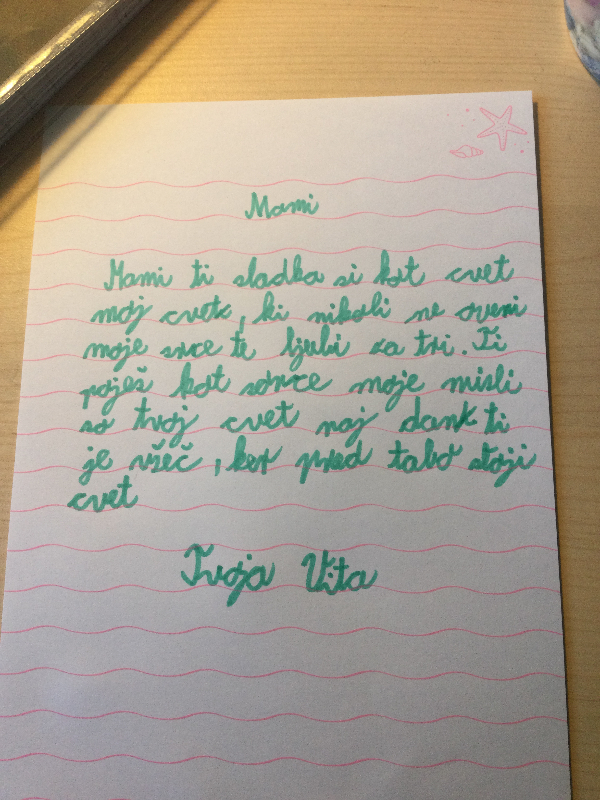 Mami
Mami ti sladka si kot cvet
moj cvetk, ki nikoli ne oveni
moje srce te ljubi za tri. Ti
poješ kot sonce moje misli
so tvoj cvet naj dank ti
je všeč, ker pred tabo stoji
cvet
Tvoja Vita